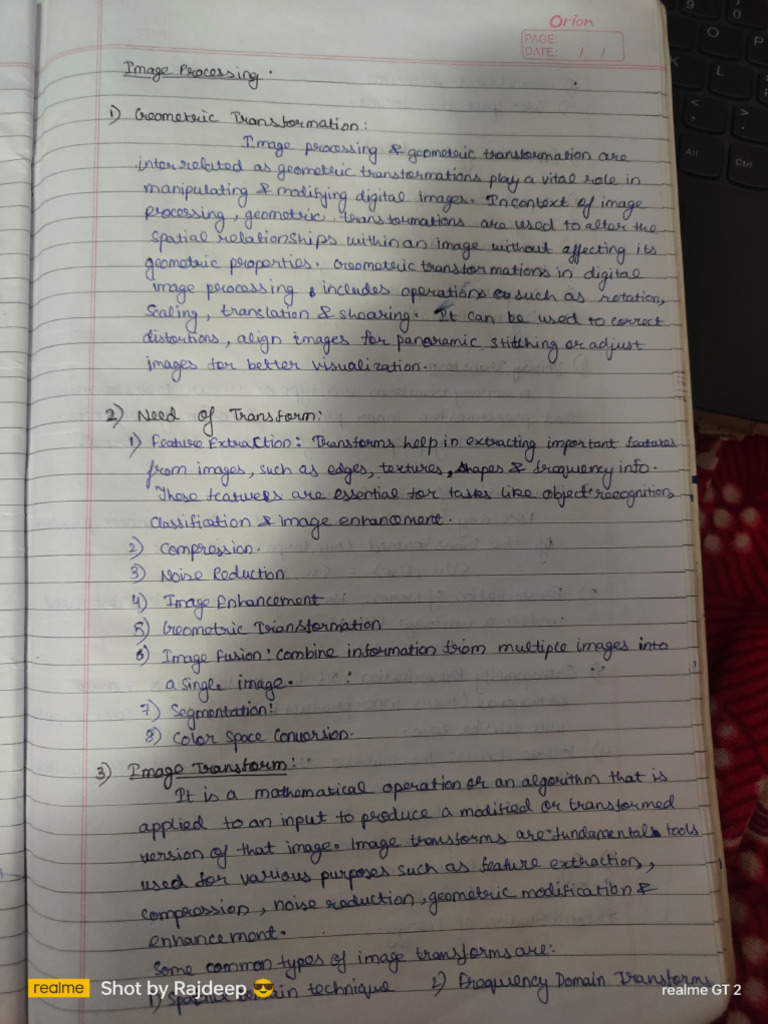 Orion
PAGE:
DATE: / /
Image Processing.
1) Geometric Transformation:
Image processing & geometric transformation are
interrelated as geometric transformations play a vital role in
manipulating & modifying digital images. In context of image
processing, geometric transformations are used to alter the
spatial relationships within an image without affecting its
geometric properties. Geometric transformations in digital
image processing, includes operations such as rotation,
Scaling, translation & shearing. It can be used to correct
distortions, align images for panoramic stitching or adjust
images for better visualization.
2) Need of Transform:
1) Feature Extraction: Transforms help in extracting important features
from images, such as edges, textures, shapes & frequency info.
These features are essential for tasks like object recognition,
classification & image enhancement.
2) Compression.
3) Noise Reduction
4) Image Enhancement
5) Geometric Transformation
6) Image fusion: Combine information from multiple images into
a single image.
7) Segmentation:
8) Color Space Conversion.
3) Image Transform:
It is a mathematical operation or an algorithm that is
applied to an input to produce a modified or transformed
version of that image. Image transforms are fundamental tools
used for various purposes such as feature extraction,
compression, noise reduction, geometric modification &
enhancement.
Some common types of image transforms are:
1) technique 2) Frequency Domain Transforms
realme Shot by Rajdeep 😎 realme GT 2
O
P
K
L
Alt
Ctrl